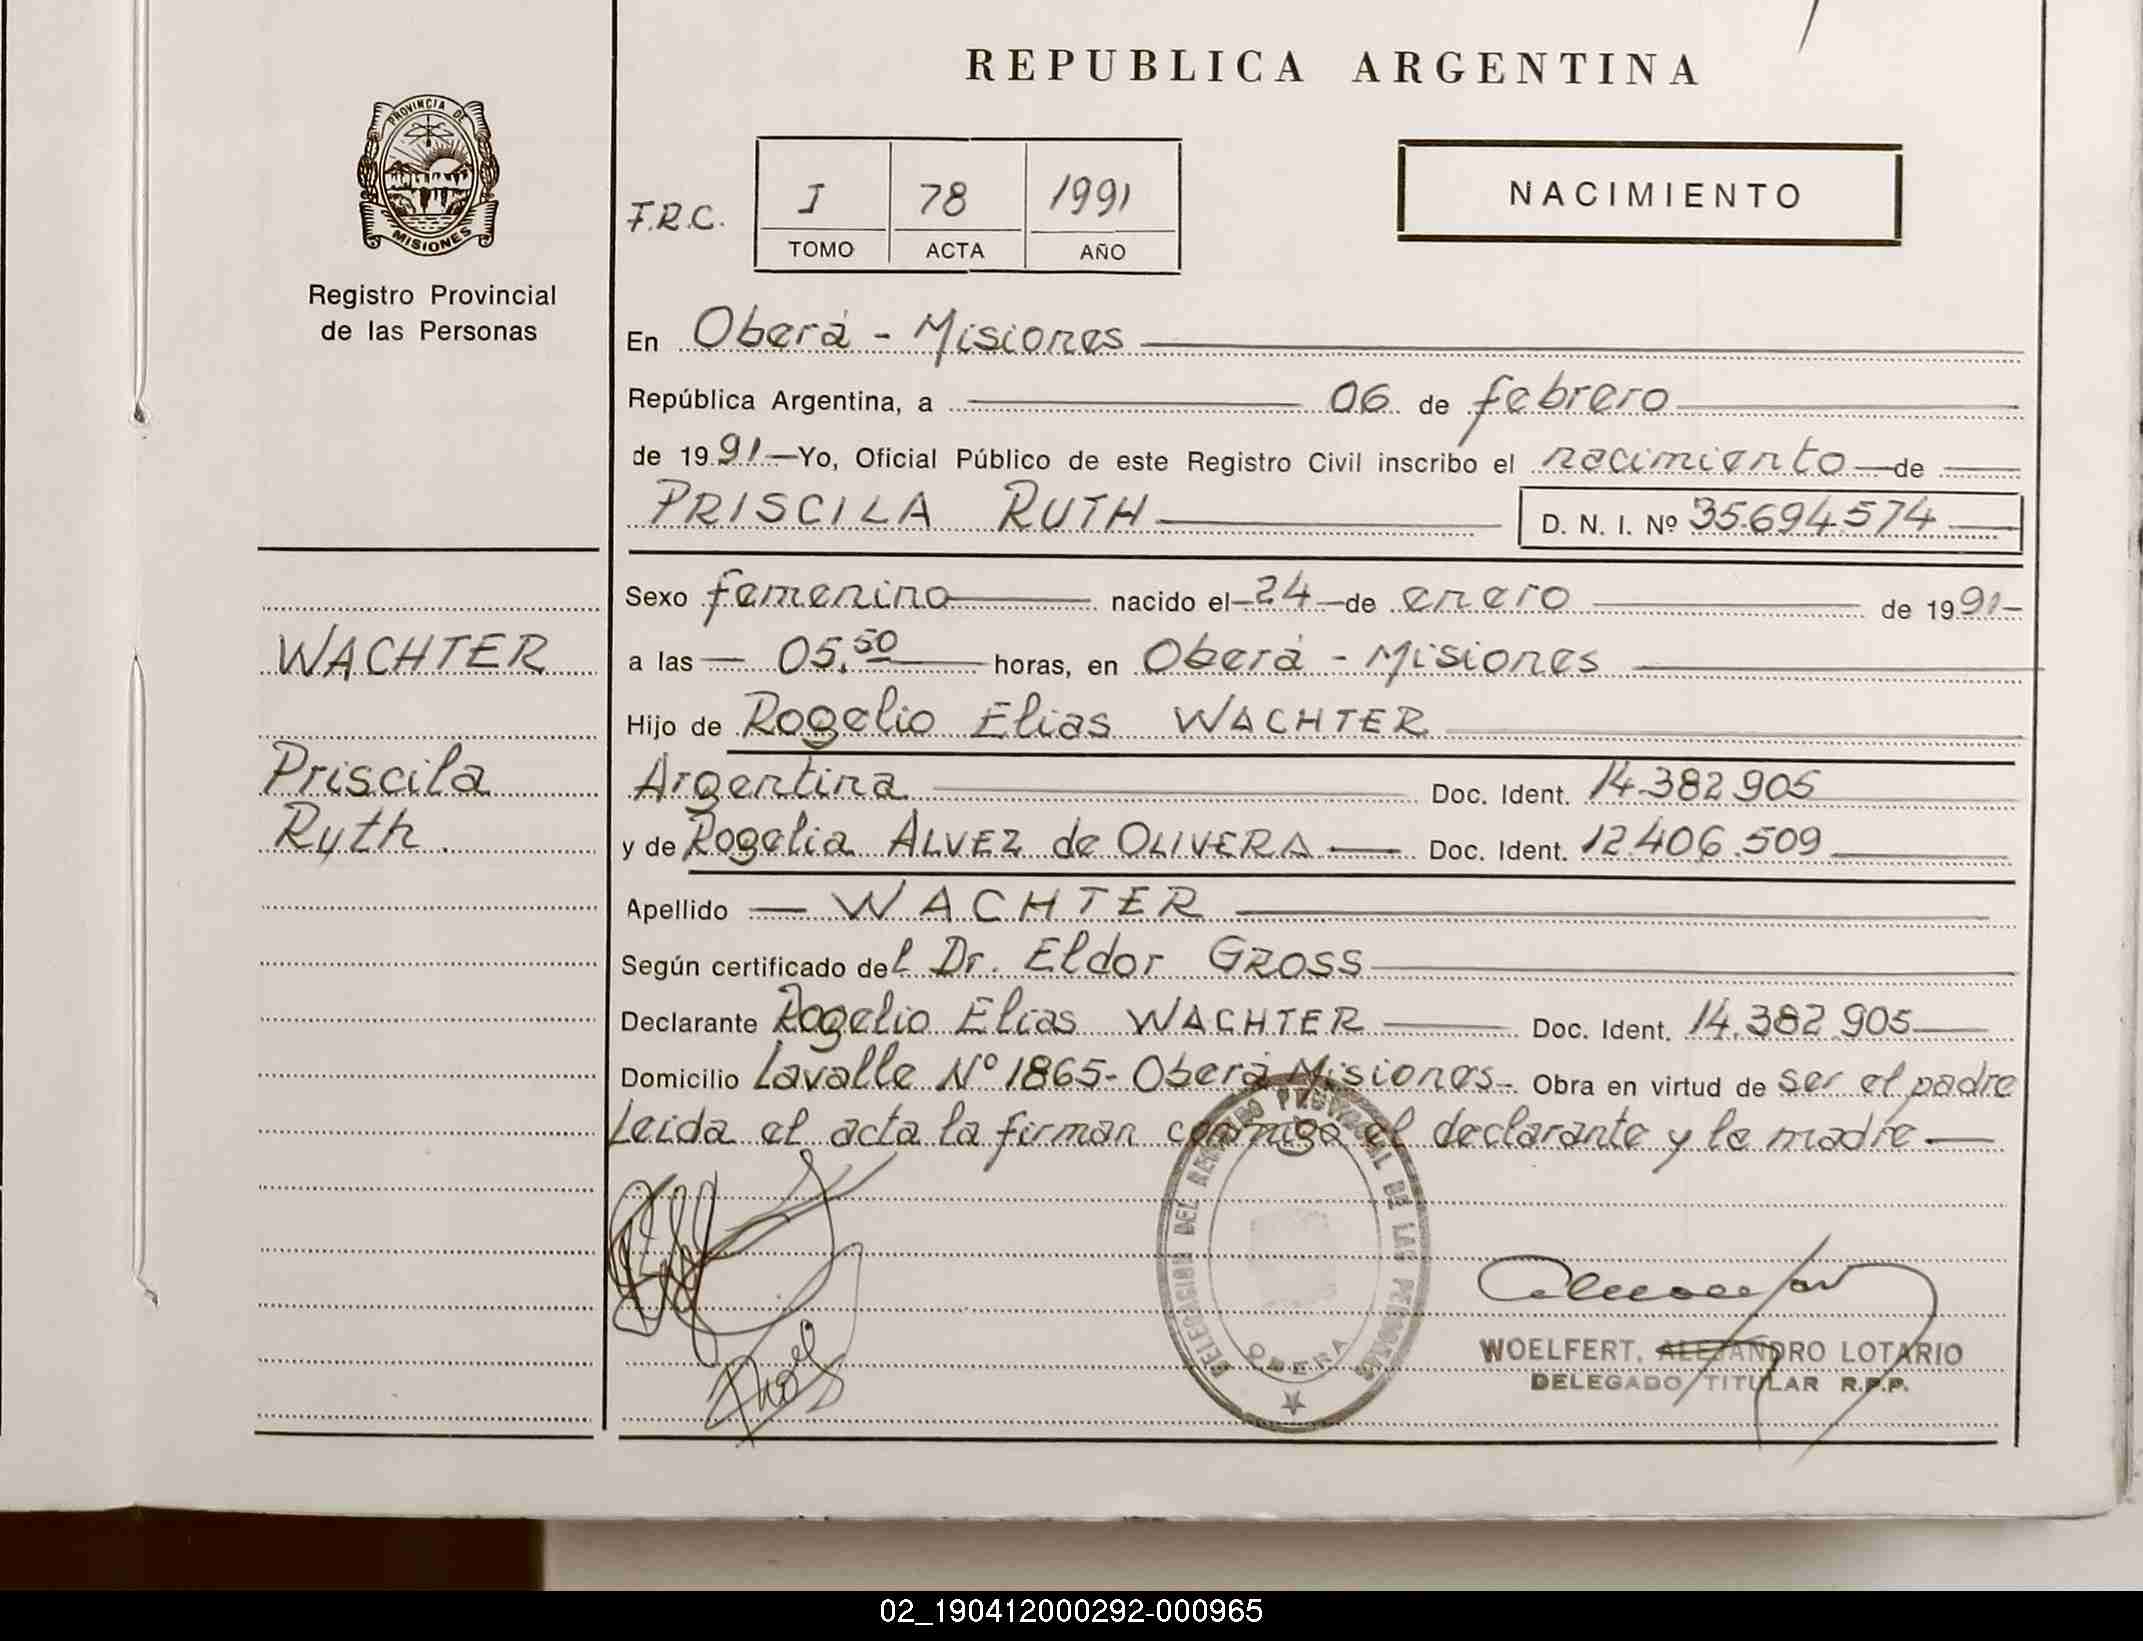 REPUBLICA ARGENTINA
PROVINCIA DE
MISIONES
Registro Provincial
de las Personas
F.R.C.
I 78 1991
TOMO ACTA AÑO
NACIMIENTO
En Oberá - Misiones
República Argentina, a 06 de febrero
de 1991 Yo, Oficial Público de este Registro Civil inscribo el nacimiento de
PRISCILA RUTH D. N. I. Nº 35.694.574
WACHTER
Priscila
Ruth
Sexo femenino nacido el 24 de enero de 1991
a las 05,50 horas, en Oberá - Misiones
Hijo de Rogelio Elias WACHTER
Argentina Doc. Ident. 14.382.905
y de Rogelia ALVEZ de OLIVERA Doc. Ident. 12.406.509
Apellido WACHTER
Según certificado del Dr. Eldor GROSS
Declarante Rogelio Elias WACHTER Doc. Ident. 14.382.905
Domicilio Lavalle Nº 1865- Oberá Misiones. Obra en virtud de ser el padre
Leida el acta la firman conmigo el declarante y la madre
DELEGACION DEL REGISTRO PROVINCIAL DE LAS PERSONAS
OBERA
WOELFERT, ALEJANDRO LOTARIO
DELEGADO TITULAR R.P.P.
02_190412000292-000965